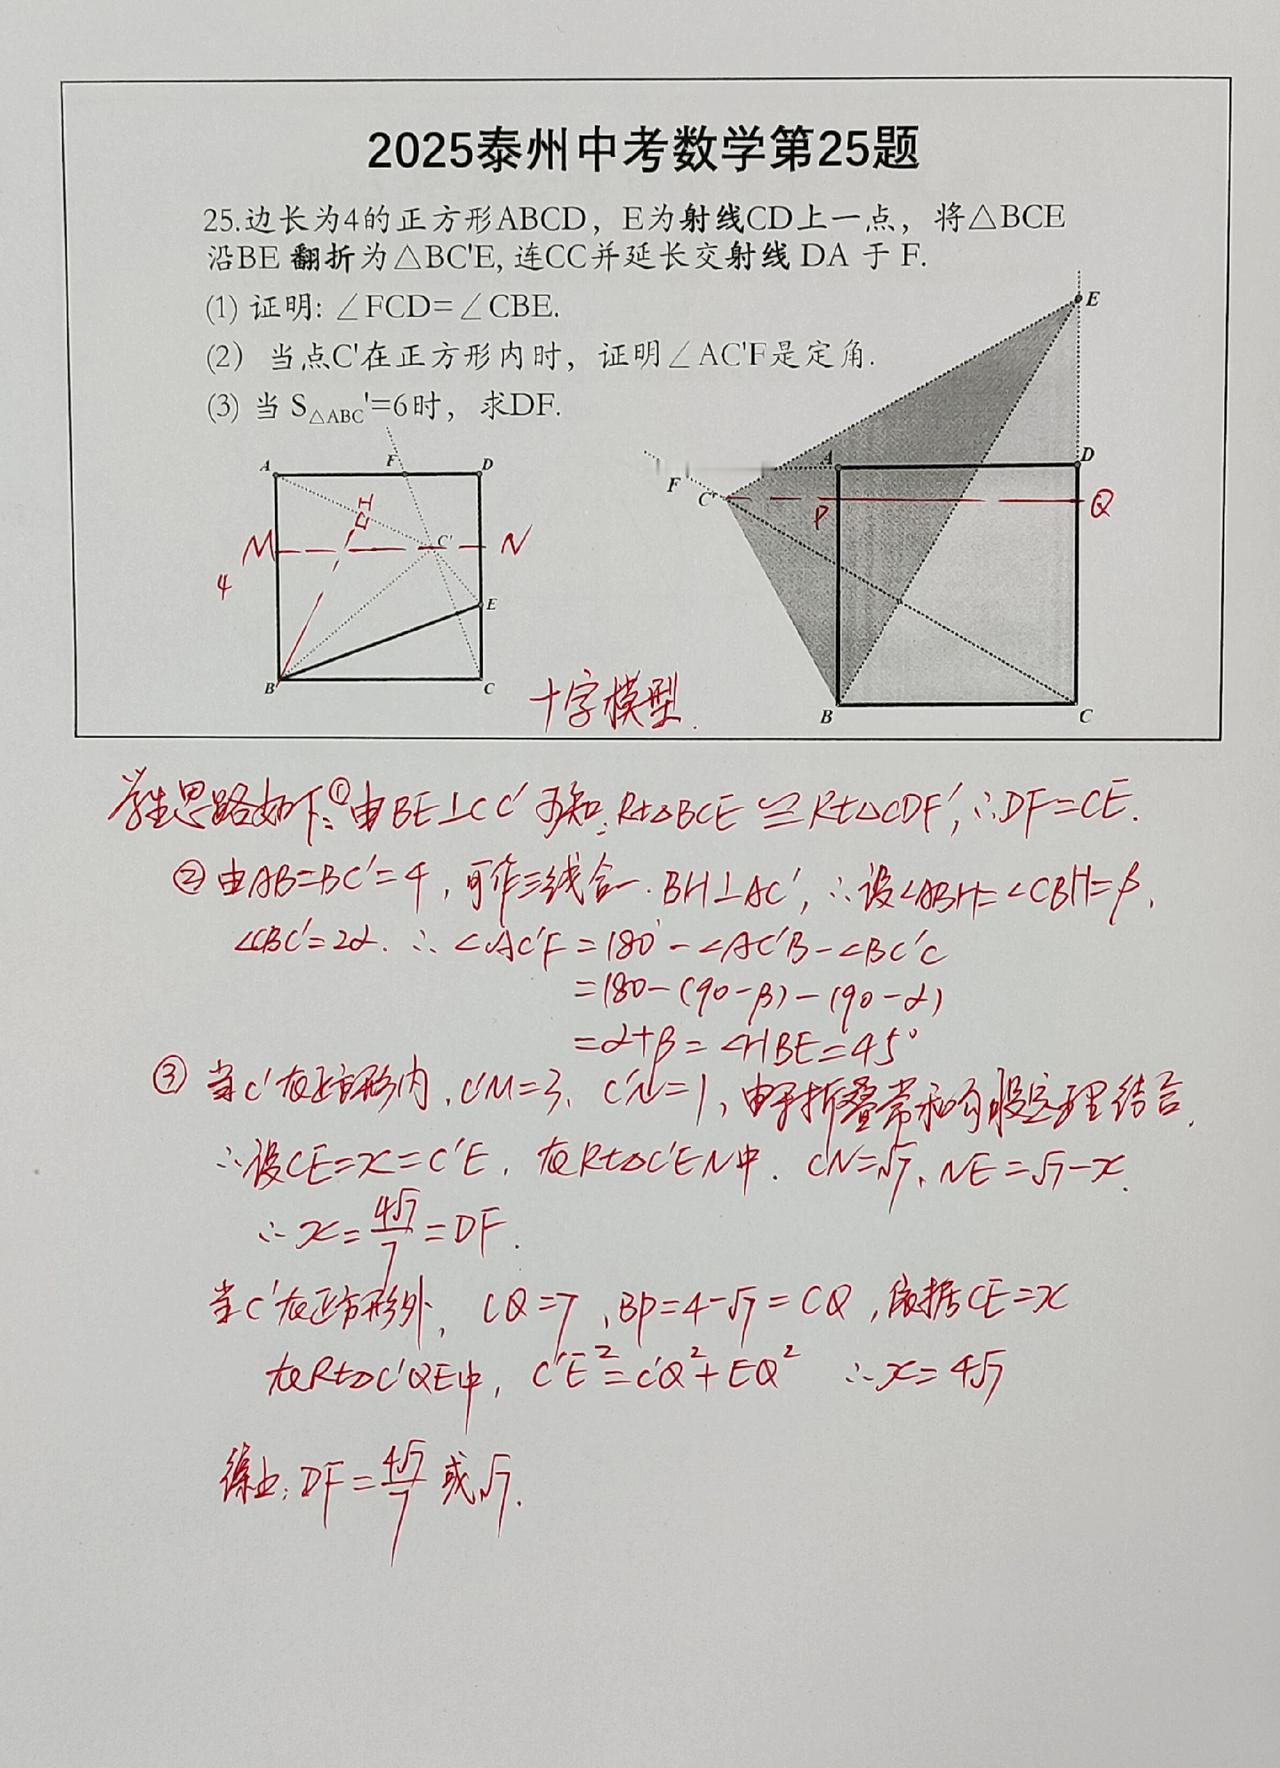 2025泰州中考数学第25题
25.边长为4的正方形ABCD，E为射线CD上一点，将△BCE
沿BE 翻折为△BC'E, 连CC并延长交射线 DA 于 F.
(1) 证明: ∠FCD=∠CBE.
(2) 当点C'在正方形内时，证明∠AC'F是定角.
(3) 当 S△ABC'=6时，求DF.
A F D
H
M C' N
4
E
B C
E
A D
F C' P Q
B C
十字模型.
学生思路如下:①由BE⊥CC'可知:Rt△BCE≌Rt△CDF',∴DF=CE.
②由AB=BC'=4,可作三线合一.BH⊥AC',∴设∠ABH=∠CBH=β,
∠CBC'=2α.∴∠AC'F=180°-∠AC'B-∠BC'C
=180-(90-β)-(90-α)
=α+β=∠HBE=45°
③当C'在正方形内,C'M=3、C'N=1,由于折叠常和勾股定理结合.
∴设CE=x=C'E.在Rt△C'EN中.CN=√7、NE=√7-x.
∴x=4√7/7=DF.
当C'在正方形外,CQ=7,BP=4-√7=CQ,依据CE=x
在Rt△C'QE中,C'E²=C'Q²+EQ² ∴x=4√7
综上:DF=4√7/7或√7.